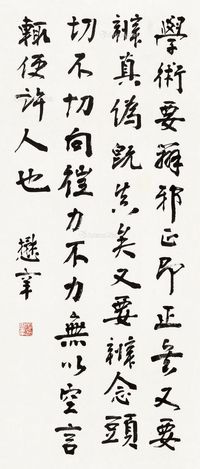 學術要辨邪正即正矣又要
辨真偽既真矣又要辨念頭
切不切向徃力不力無以空言
輒便許人也
懋辛